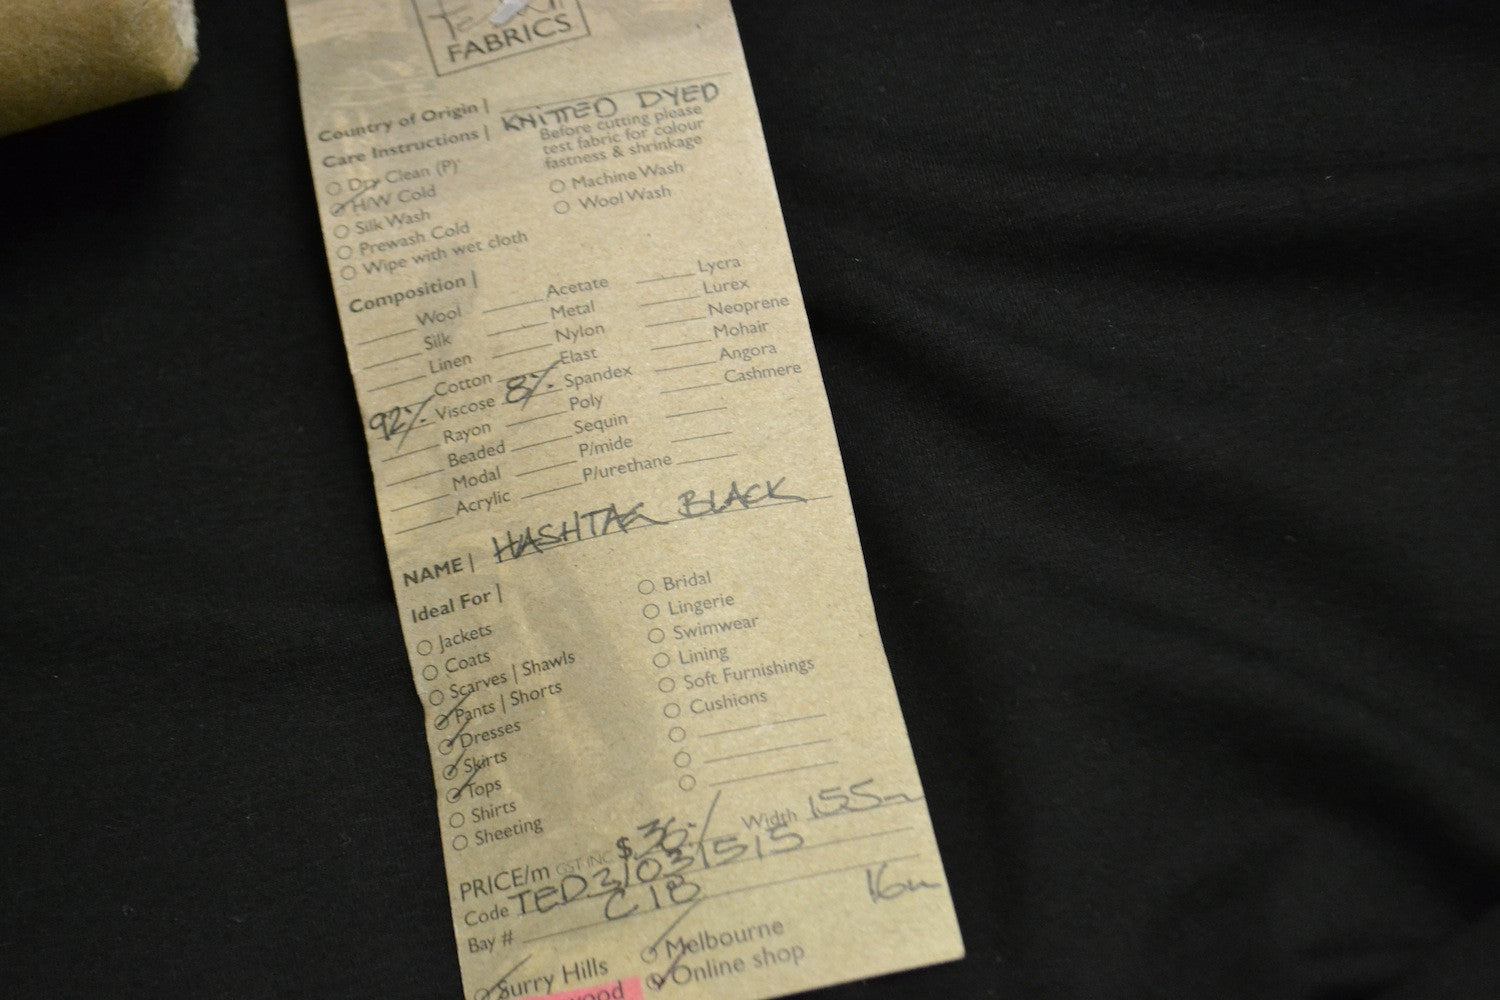 FABRICS
Country of Origin |
KNITTED DYED
Care Instructions | Before cutting please
test fabric for colour
fastness & shrinkage
Dry Clean (P)
H/W Cold
Silk Wash
Prewash Cold
Wipe with wet cloth
Machine Wash
Wool Wash
Composition |
Wool
Silk
Linen
Cotton
92% Viscose
Rayon
Beaded
Modal
Acrylic
Acetate
Metal
Nylon
Elast
8% Spandex
Poly
Sequin
P/mide
P/urethane
Lycra
Lurex
Neoprene
Mohair
Angora
Cashmere
NAME | HASHTAG BLACK
Ideal For |
Jackets
Coats
Scarves | Shawls
Pants | Shorts
Dresses
Skirts
Tops
Shirts
Sheeting
Bridal
Lingerie
Swimwear
Lining
Soft Furnishings
Cushions
PRICE/m GST INC $36.- Width 155m
Code TED31031515
Bay # C1B 16m
Surry Hills
Melbourne
Online shop